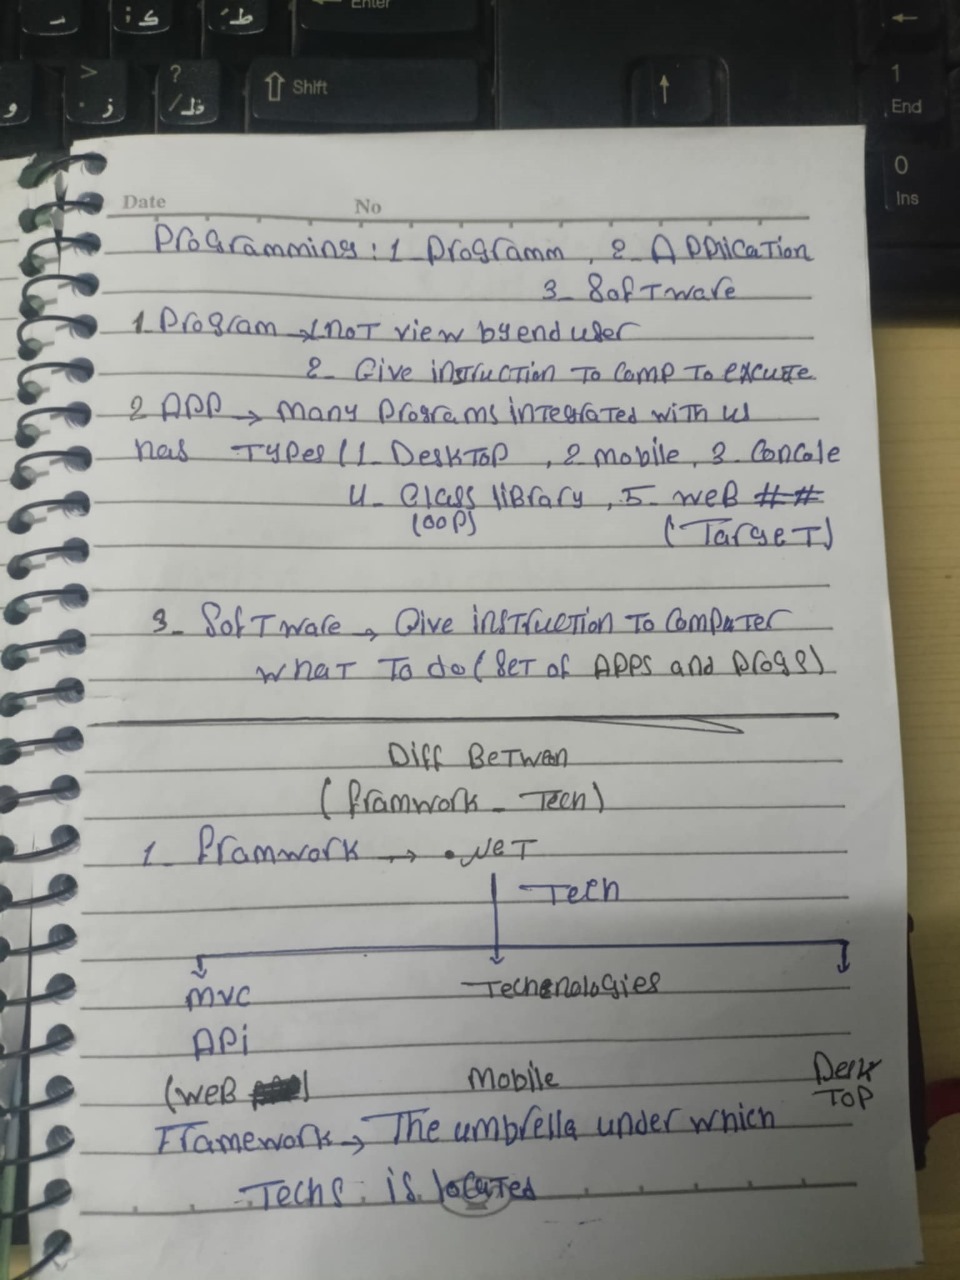 ط ؛
ك ؛
Enter
←
>
ز .
?
ظ /
و
⇧ Shift
↑
1
End
0
Ins
Date No
Programming : 1 Programm , 2_ Application
3_ Software
1 Program → 1 not view by end user
2_ Give instruction to comp to excute
2 APP → many programs integrated with us
has Types ( 1_ Desktop , 2 mobile , 3_ Concole
4_ Class library , 5_ web ##
(OOP) (Target)
3_ Software → Give instruction to computer
what to do ( set of APPS and progs )
Diff Betwen
( framwork _ Tech )
1_ framwork → .NeT
Tech
mvc Techenologies
APi
(web ) Mobile Desk
Top
Framework → The umbrella under which
Techs is located